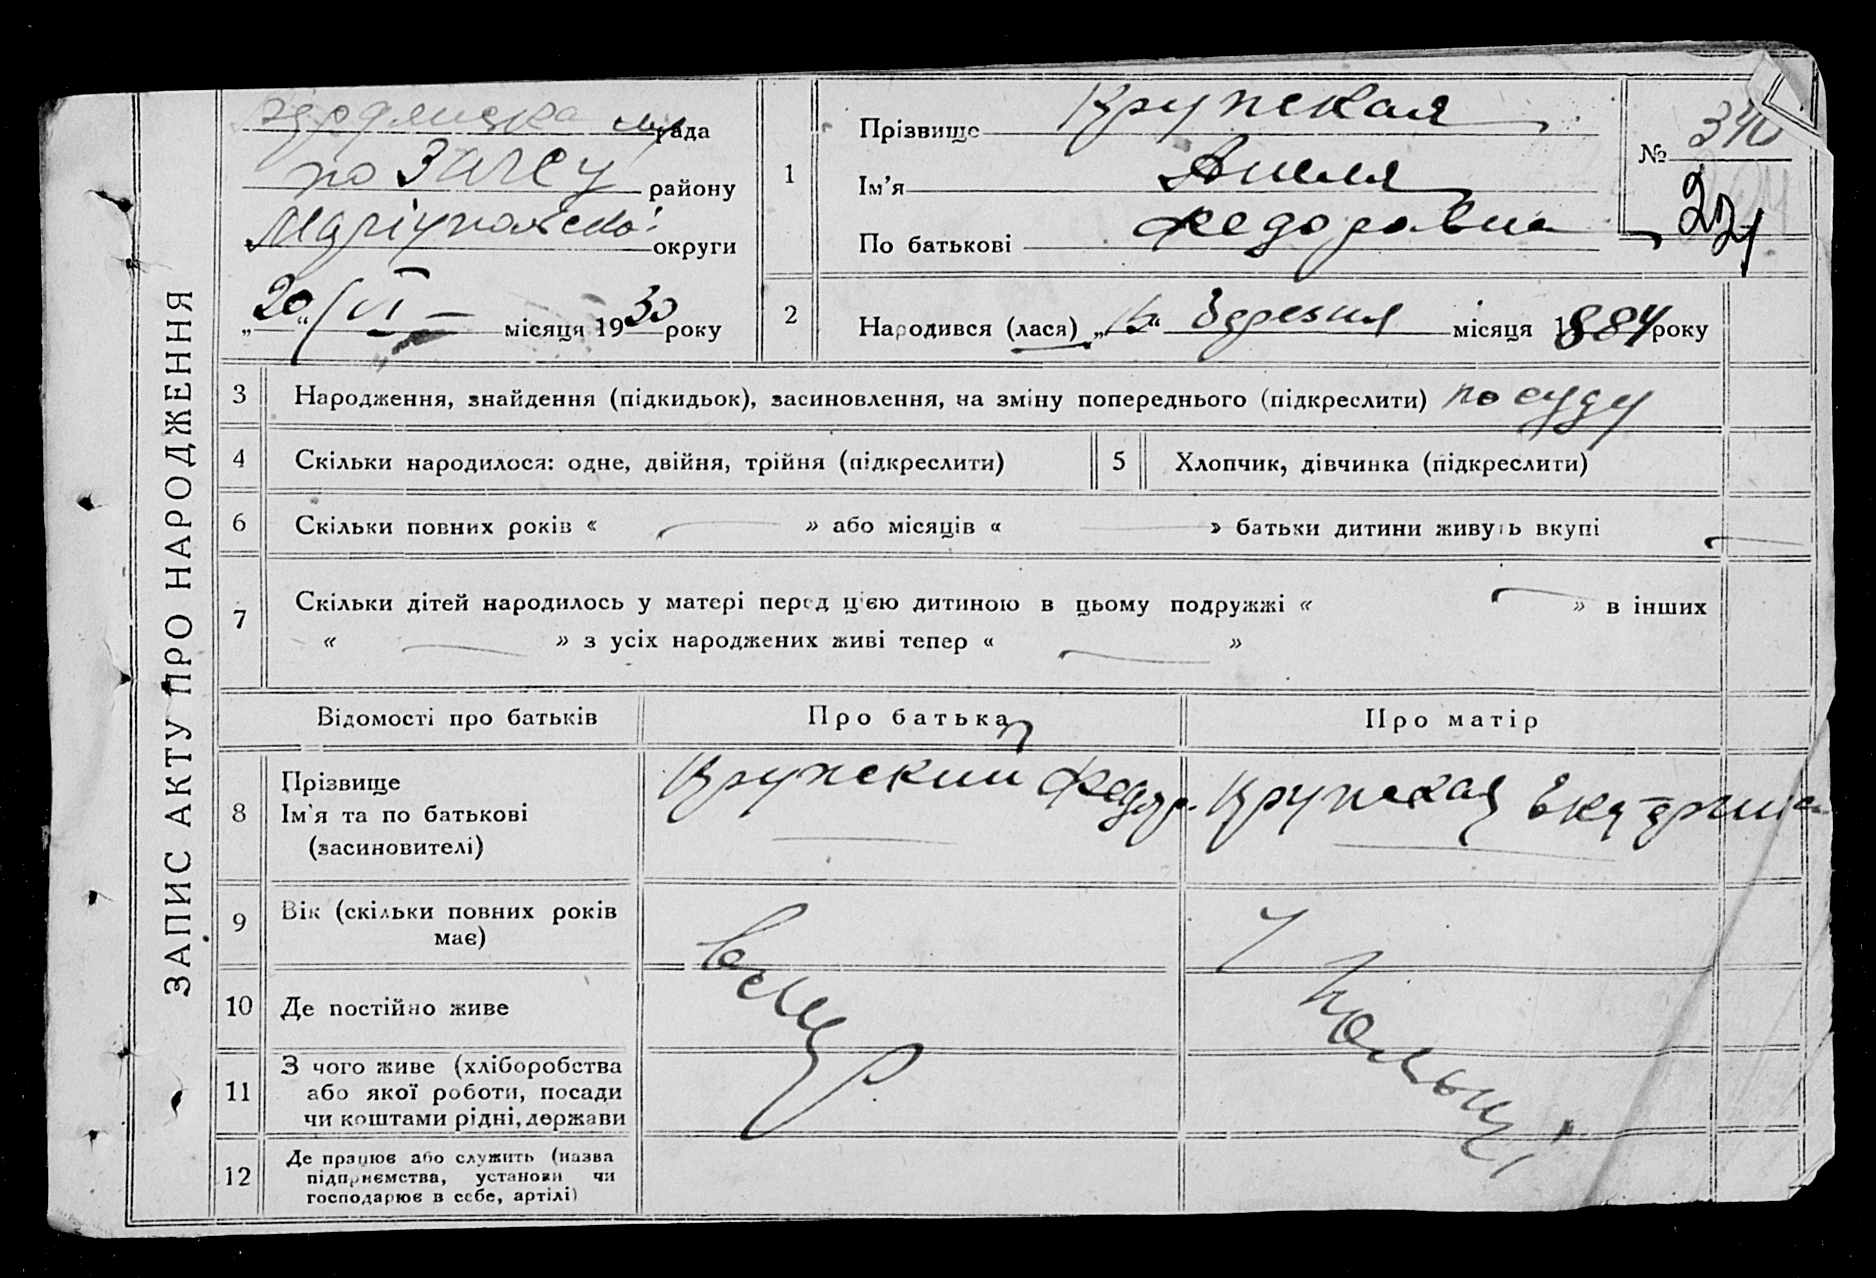 ЗАПИС АКТУ ПРО НАРОДЖЕННЯ
рада
по ЗАГСу району
Маріупольської округи
„20“ VI місяця 1930 року
1
Прізвище Крупская
Ім'я Анеля
По батькові Федоровна
№ 340
221
2
Народився (лася) „ “ березня місяця 1884 року
3 Народження, знайдення (підкидьок), засиновлення, на зміну попереднього (підкреслити) по суду
4 Скільки народилося: одне, двійня, трійня (підкреслити)
5 Хлопчик, дівчинка (підкреслити)
6 Скільки повних років « » або місяців « » батьки дитини живуть вкупі
7 Скільки дітей народилось у матері перед цією дитиною в цьому подружжі « » в інших
« » з усіх народжених живі тепер « »
Відомості про батьків
Про батька
Про матір
8
Прізвище
Ім'я та по батькові
(засиновителі)
Крупский Федор
Крупская Екатерина
9
Вік (скільки повних років
має)
10 Де постійно живе
11
З чого живе (хліборобства
або якої роботи, посади
чи коштами рідні, держави
12
Де працює або служить (назва
підприємства, установи чи
господарює в себе, артілі)
в Польщі